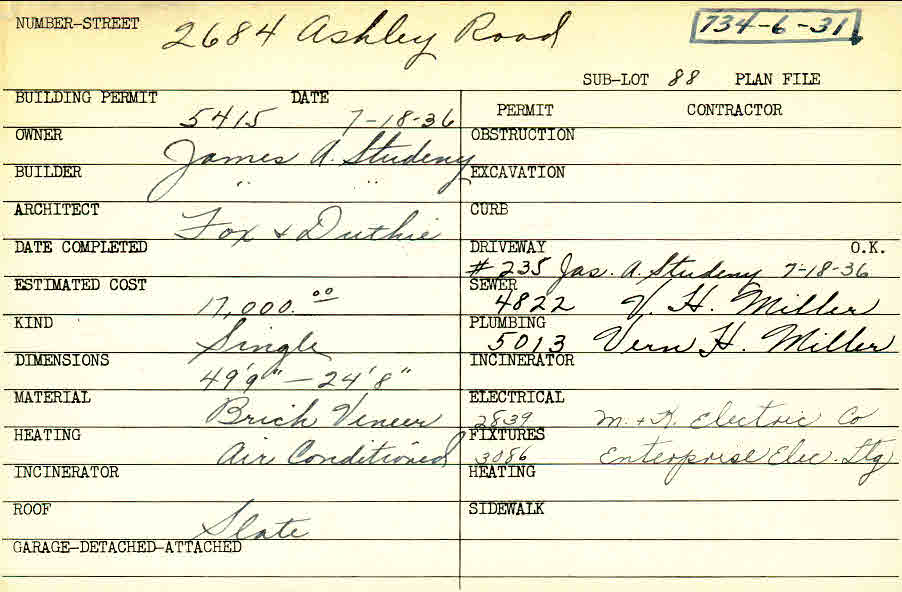 NUMBER-STREET 2684 Ashley Road 734-6-31
SUB-LOT 88 PLAN FILE
BUILDING PERMIT 5415 DATE 7-18-36
OWNER James A. Studeny
BUILDER " "
ARCHITECT Fox & Duthie
DATE COMPLETED
ESTIMATED COST 17,000.00
KIND Single
DIMENSIONS 49'9" — 24'8"
MATERIAL Brick Veneer
HEATING Air Conditioned
INCINERATOR
ROOF Slate
GARAGE-DETACHED-ATTACHED
PERMIT CONTRACTOR
OBSTRUCTION
EXCAVATION
CURB
DRIVEWAY O.K.
#235 Jas. A. Studeny 7-18-36
SEWER
4822 V. H. Miller
PLUMBING
5013 Vern H. Miller
INCINERATOR
ELECTRICAL
2839 M. + K. Electric Co
FIXTURES
3086 Enterprise Elec. Ltg
HEATING
SIDEWALK